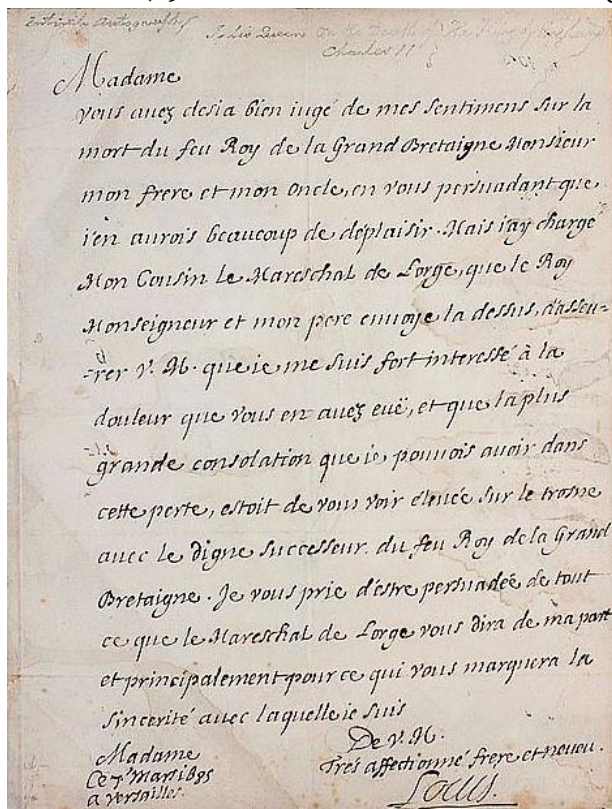 Entirely Autograph
To his Queen on the Death of The King of England
Charles II
Madame
vous auez desia bien iugé de mes sentimens sur la
mort du feu Roy de la Grand Bretaigne Monsieur
mon frere et mon Oncle, en vous persuadant que
i'en aurois beaucoup de déplaisir. Mais i'ay chargé
Mon Cousin Le Mareschal de Lorge, que le Roy
Monseigneur et mon pere enuoye la dessus, d'asseu-
-rer V. M. que ie me suis fort interessé à la
douleur que vous en auez euë, et que la plus
grande consolation que ie pouuois auoir dans
cette perte, estoit de vous voir eleuée sur le trosne
auec le digne successeur du feu Roy de la Grand
Bretaigne. Je vous prie d'estre persuadée de tout
ce que le Mareschal de Lorge vous dira de ma part
et principalement pour ce qui vous marquera la
sincerité auec laquelle ie suis
De V. M.
Madame
Trés affectionné frere et neueu.
Ce 7e Mars 1685
a versailles.
Louis.